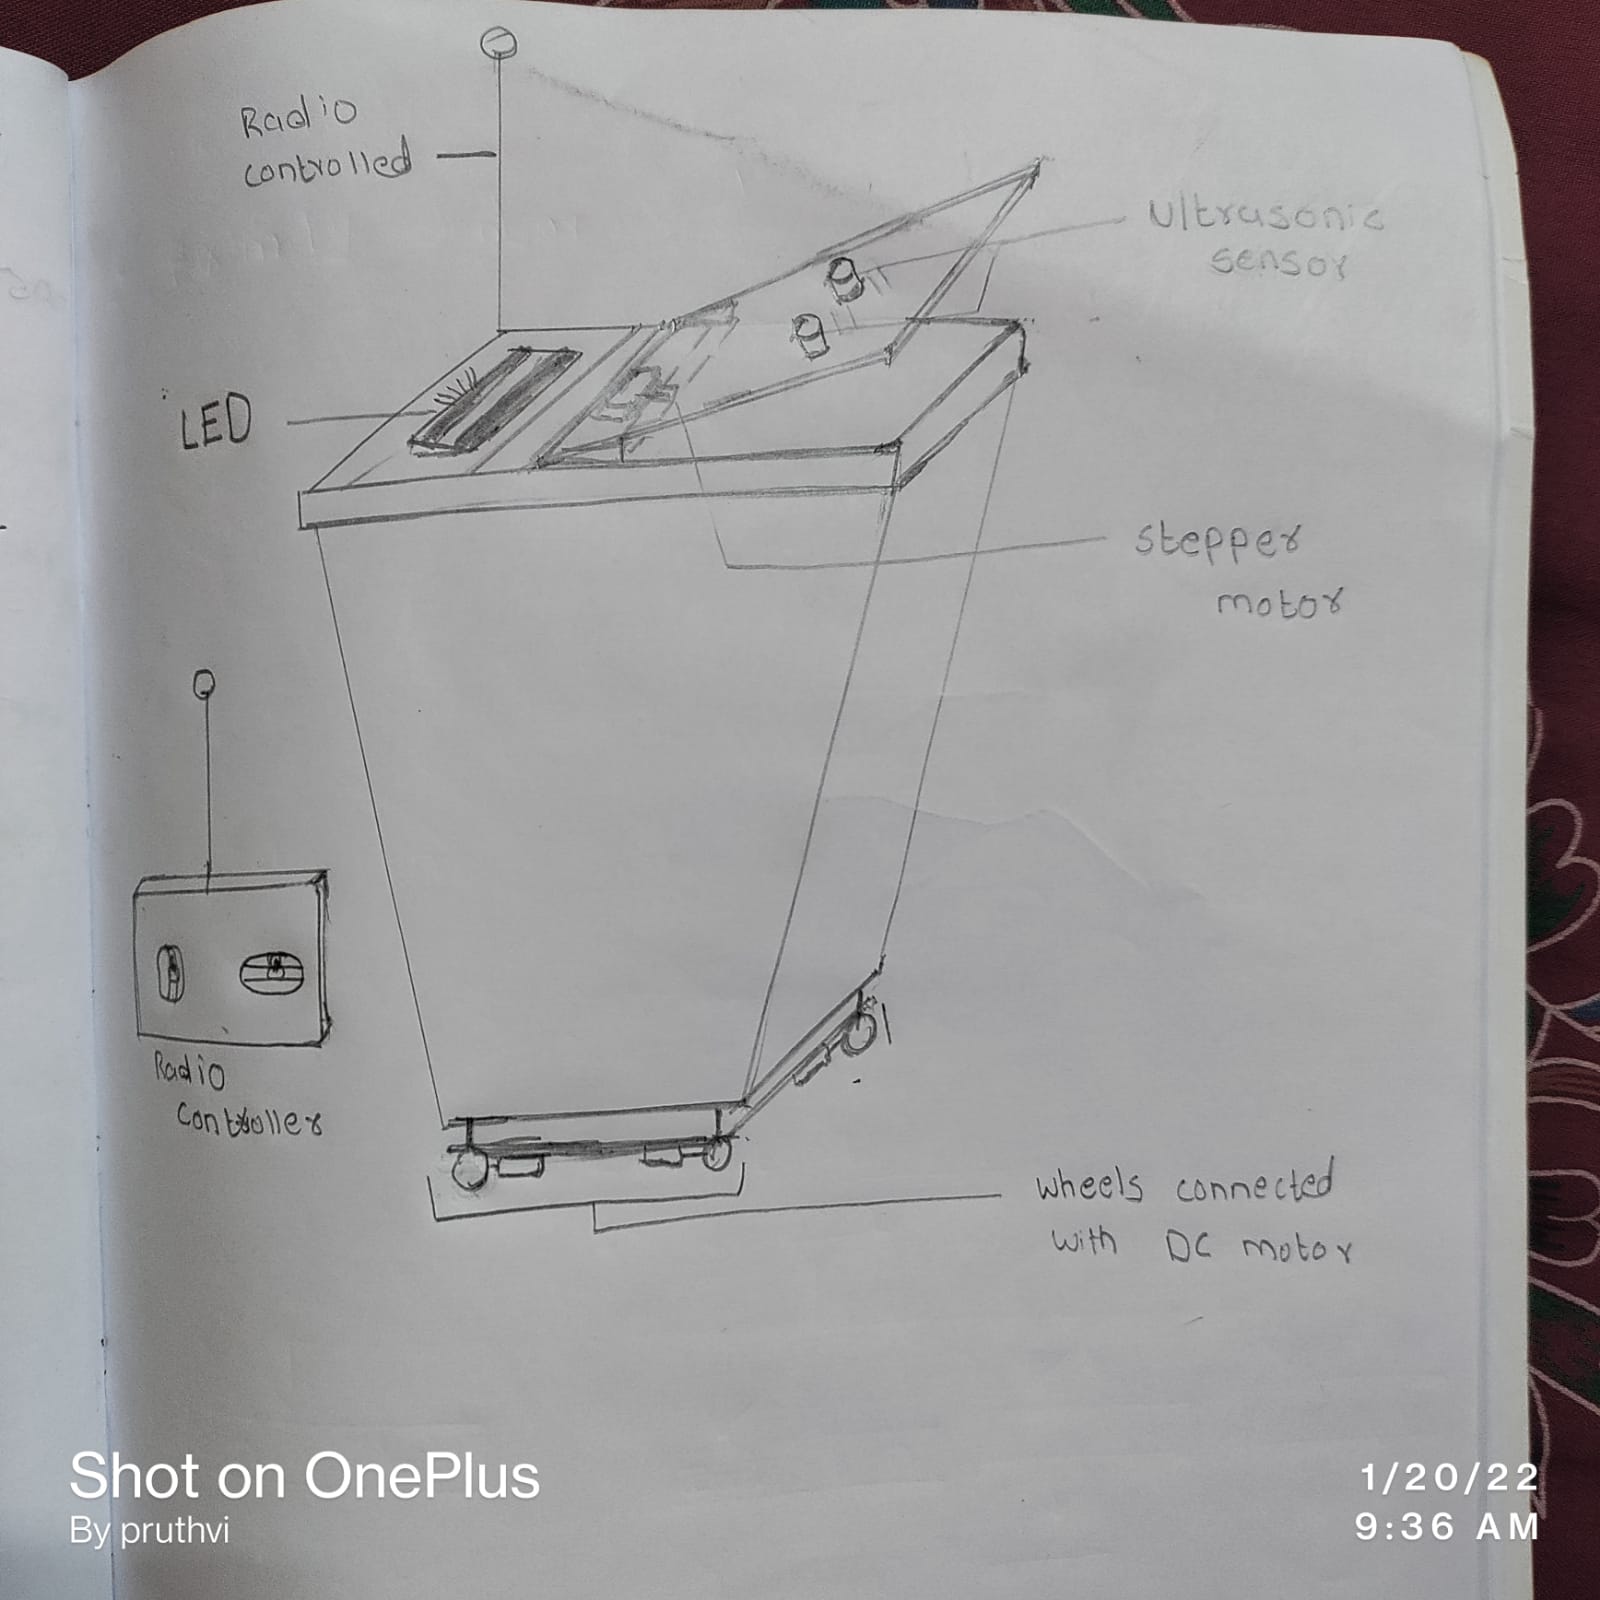 Radio
controlled
ultrasonic
sensor
LED
stepper
motor
Radio
controller
wheels connected
with DC motor
Shot on OnePlus
By pruthvi
1/20/22
9:36 AM